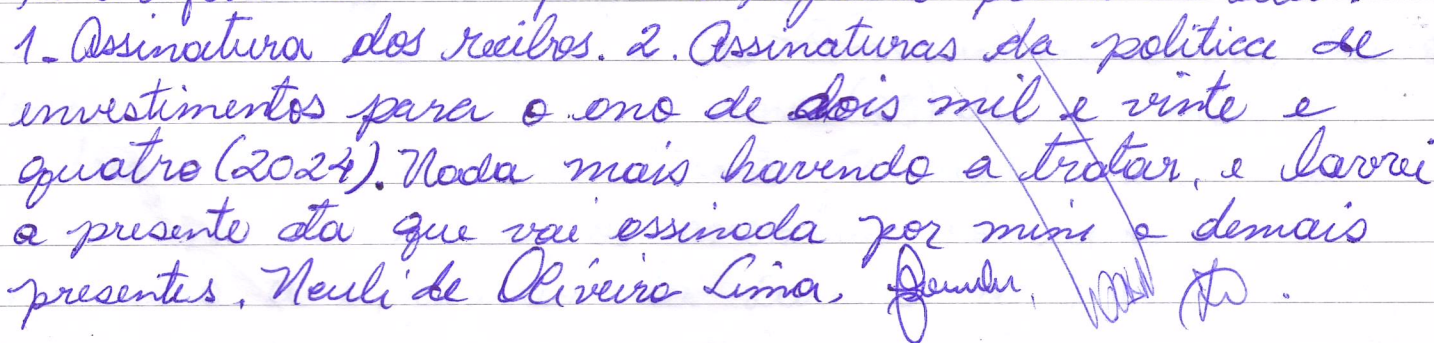 1. Assinatura dos recibos. 2. Assinaturas da politica de
envestimentos para o ano de dois mil e vinte e
quatro (2024). Nada mais havendo a tratar, e lavrei
a presente ata que vai assinada por mim e demais
presentes. Neuli de Oliveira Lima,